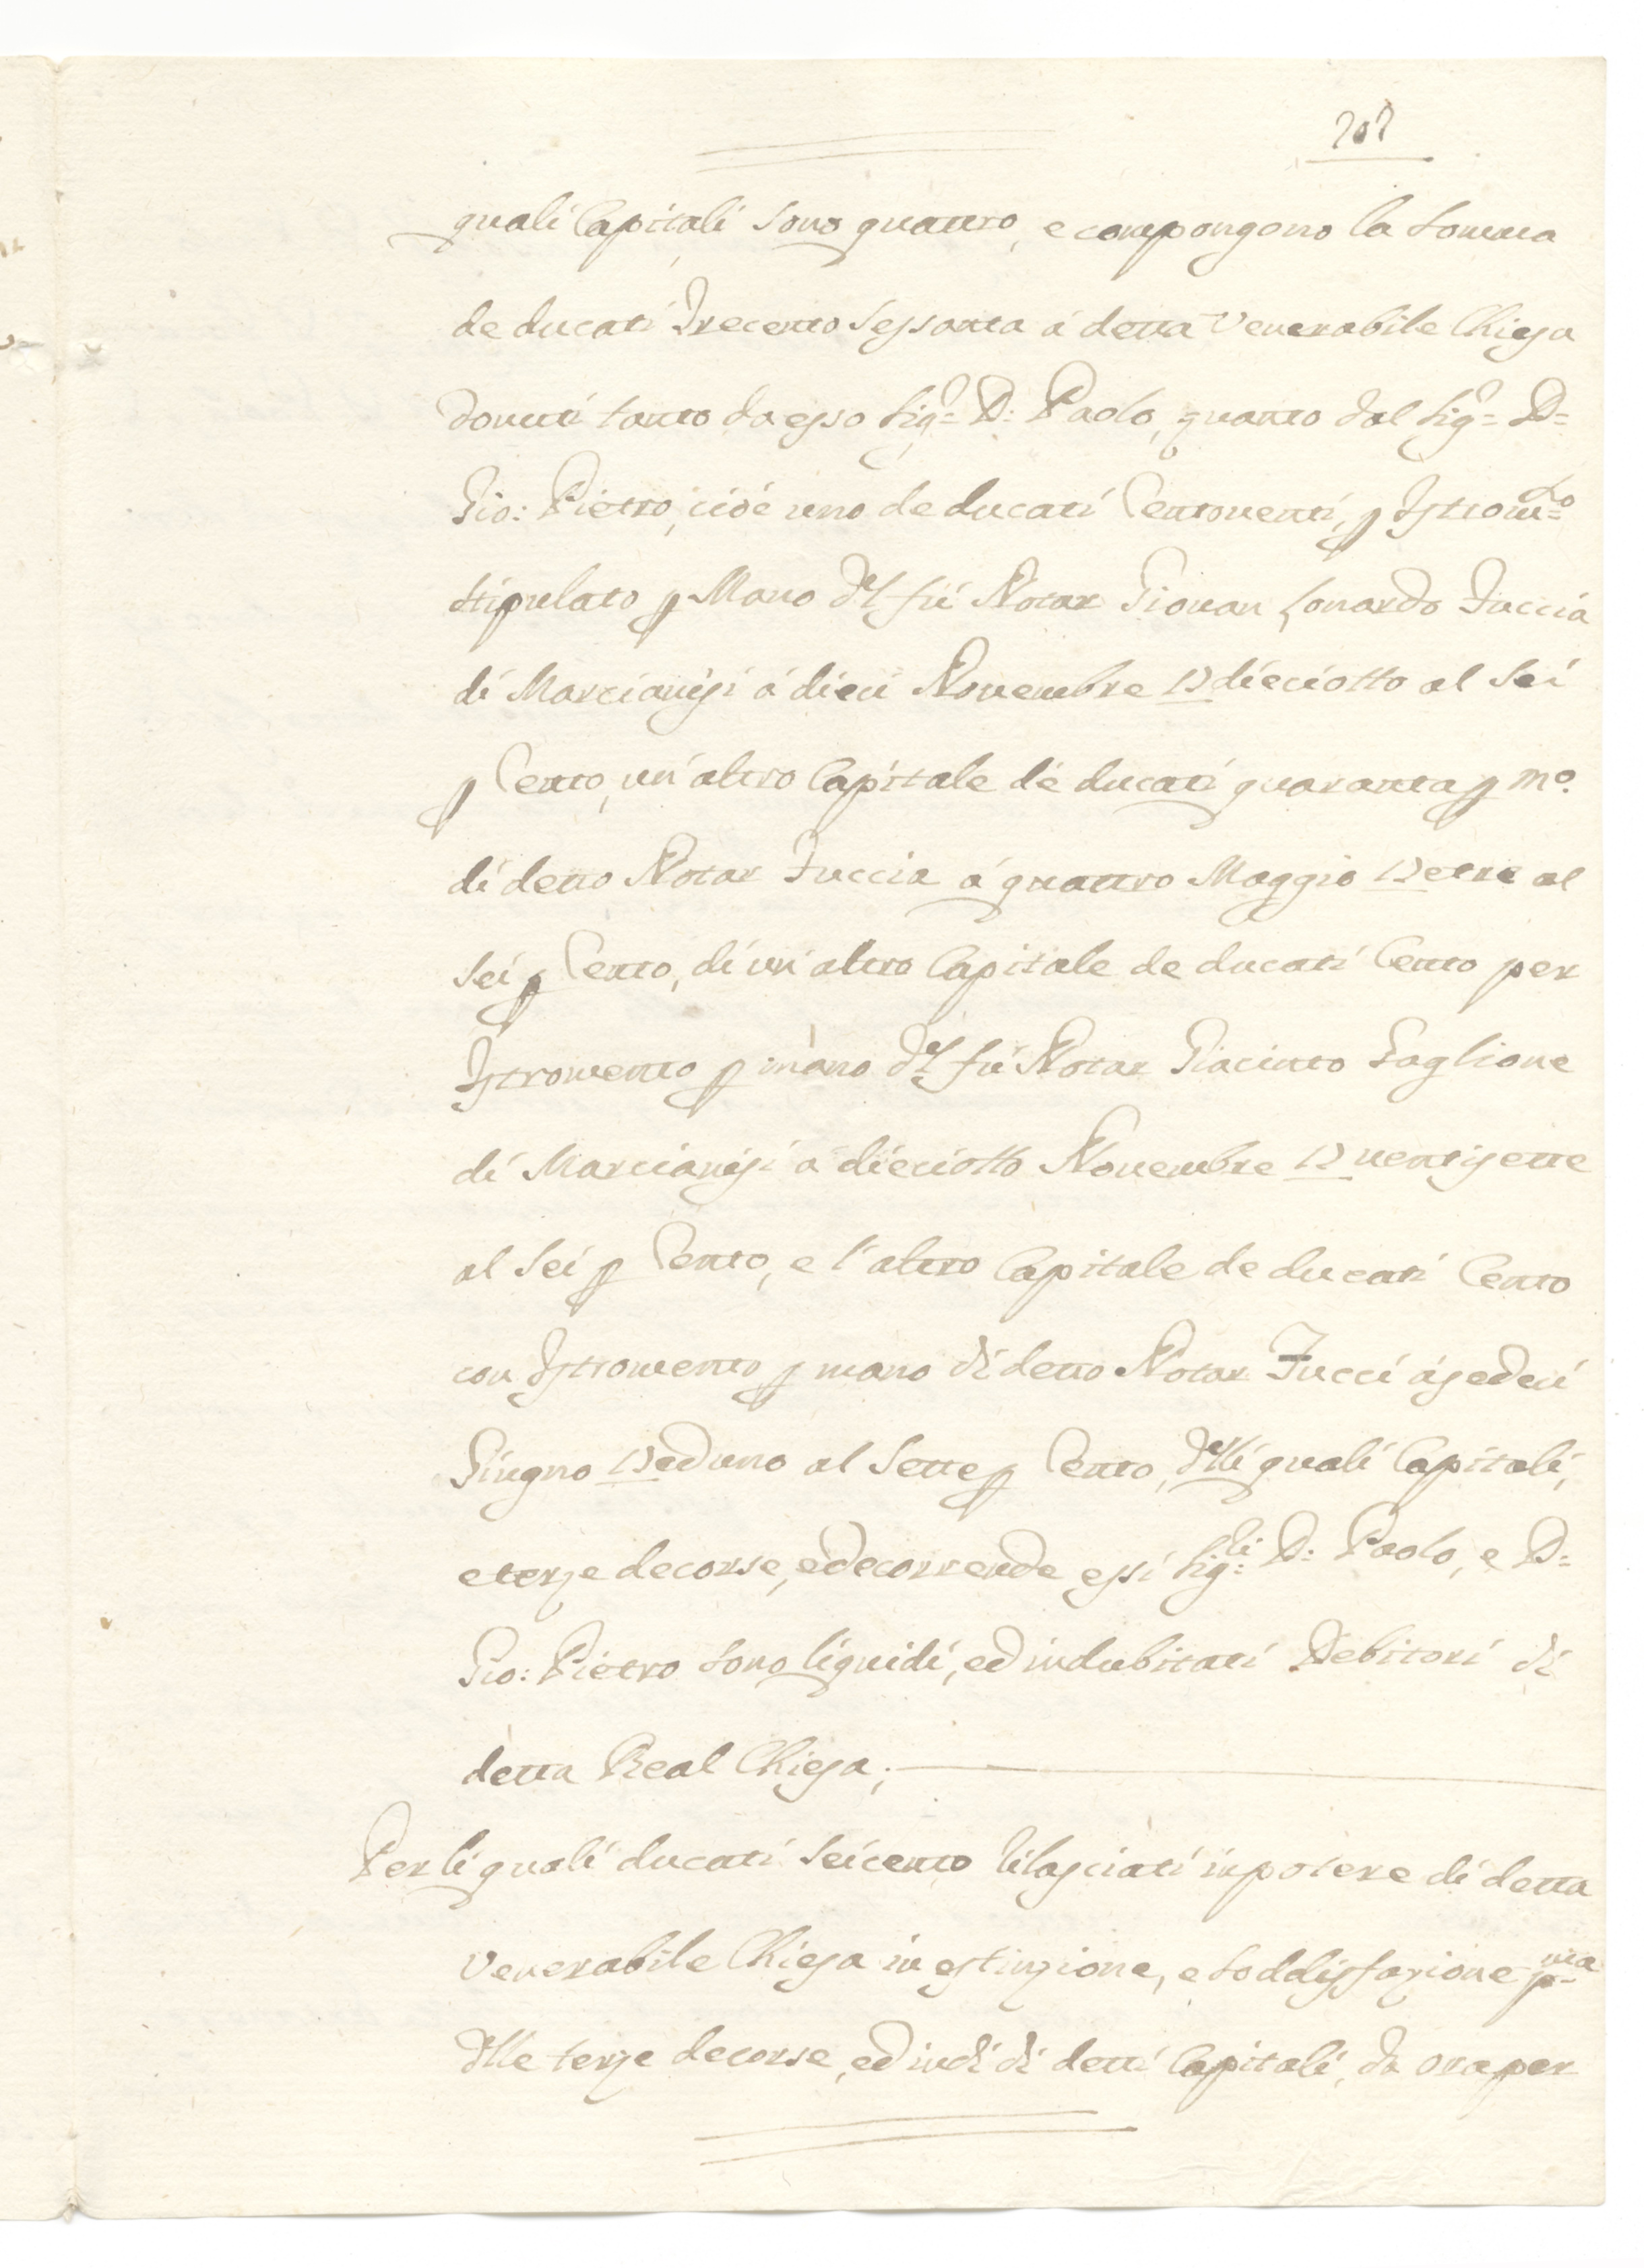 707
quali Capitali sono quattro, e compongono la somma
de ducati Trecento sessanta á detta Venerabile Chiesa
dovuti tanto da esso Sig.r D: Paolo, quanto dal Sig.r D:
Gio: Pietro, cioé uno de ducati Centoventi, p Istrom.to
stipulato p Mano del fú Notar Giovan Lonardo Tuccia
di Marcianisi á dieci Novembre 17 dieciotto al sei
p Cento, un'altro Capitale de ducati quaranta p m.o
di detto Notar Tuccia á quattro Maggio 17 etre al
sei p Cento, di un'altro Capitale de ducati Cento per
Istromento p mano del fú Notar Giacinto Gaglione
di Marcianisi á dieciotto Novembre 17 ventisette
al sei p Cento, e l'altro Capitale de ducati Cento
con Istromento p mano di detto Notar Tucci á sedeci
Giugno 17 ed uno al sette p Cento, delli quali Capitali,
e terze decorse, e decorrende essi Sig.ri D: Paolo, e D:
Gio: Pietro sono liquidi, ed indubitati Debitori di
detta Real Chiesa;
Per li quali ducati seicento rilasciati in potere di detta
Venerabile Chiesa in estinzione, e soddisfazione p.ma
delle terze decorse, ed indi di detti Capitali, da ora per